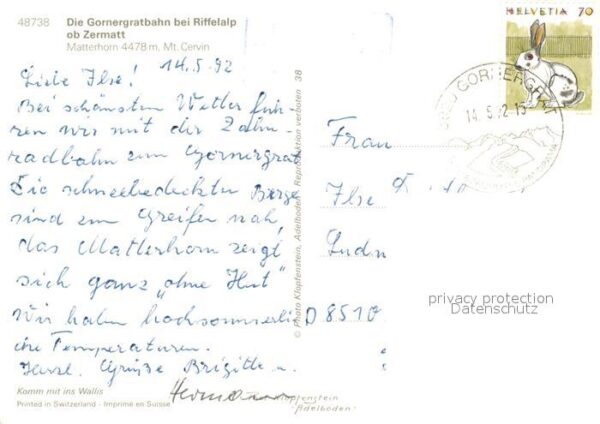 48738
Die Gornergratbahn bei Riffelalp
ob Zermatt
Matterhorn 4478 m, Mt. Cervin
14.5.92
Liebe Ilse!
Bei schönstem Wetter fuh-
ren wir mit der Zahn-
radbahn zum Gornergrat
Die schneebedeckten Berge
sind zum Greifen nah,
das Matterhorn zeigt
sich ganz "ohne Hut"
Wir haben hochsommerli-
che Temperaturen.
Herzl. Grüße Brigitte u.
Hermann
Komm mit ins Wallis
Printed in Switzerland - Imprimé en Suisse
© Photo Klopfenstein, Adelboden / Reproduktion verboten 38
HELVETIA 70
GORNERGRAT
14.5.92-15
Frau
Ilse
D 8510
privacy protection
Datenschutz
Klopfenstein
Adelboden